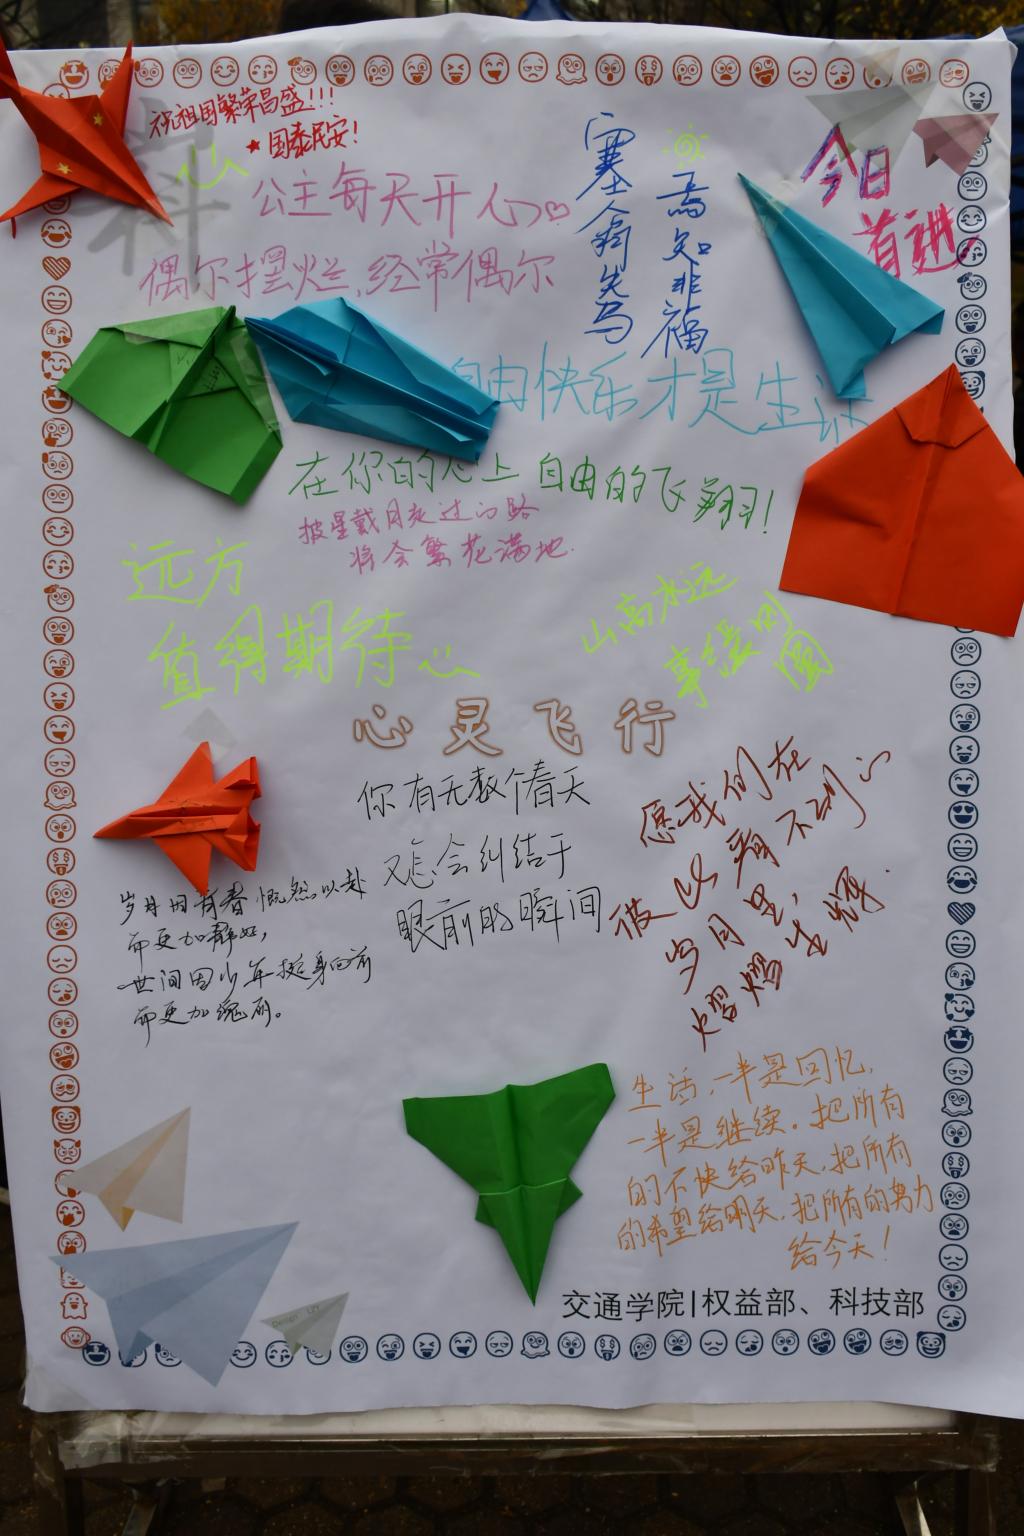 祝祖国繁荣昌盛!!!
★国泰民安!
公主每天开心♡
偶尔摆烂,经常偶尔
塞翁失马
焉知非福
今日
首进
自由快乐才是生活
在你的心上 自由的飞翔!
披星戴月走过的路
将会繁花满地.
远方
值得期待
山高水远
事缓则圆
心灵飞行
你有无数个春天
又怎会纠结于
眼前的瞬间
愿我们在
彼此看不到的
岁月里,
熠熠生辉.
岁月因青春慨然以赴
而更加静好,
世间因少年挺身向前
而更加瑰丽。
生活,一半是回忆,
一半是继续。把所有
的不快给昨天,把所有
的希望给明天,把所有的努力
给今天!
交通学院|权益部、科技部